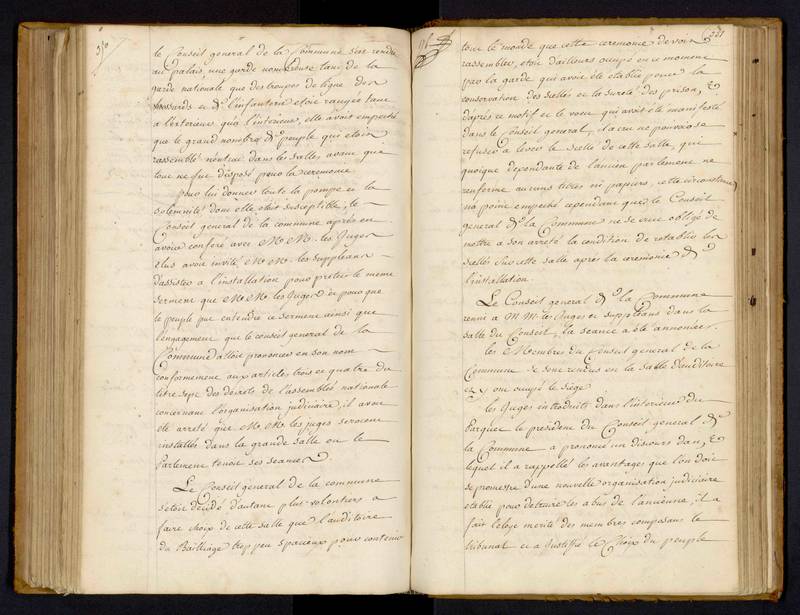 le Conseil general de la Commune s'est rendu
au palais, une garde nombreuse tant de la
garde nationale que des troupes de ligne des
hussards et de l'infanterie etoit rangée tant
a l'exterieur que l'interieur, elle avoit empeché
que le grand nombre de peuple qui etoit
rassemblé n'entrat dans les salles avant que
tout ne fut disposé pour la ceremonie
pour lui donner toute la pompe et la
solemnité dont elle etoit susceptible, le
Conseil general de la commune après en
avoir conferé avec M.M. les Juges
elus avoit invité M.M. les suppleans
d'assister a l'installation pour preter le meme
serment que M.M. les Juges et pour que
le peuple put entendre ce serment ainsi que
l'engagement que le conseil general de la
Commune alloit prononcer en son nom
conformement aux articles trois et quatre du
titre sept des décrets de l'assemblée nationale
concernant l'organisation judiciaire, il avoit
eté arreté que M.M. les juges seroient
installés dans la grande salle ou le
Parlement tenoit ses seances
Le Conseil general de la commune
s'etoit décidé d'autant plus volontiers a
faire choix de cette salle que l'auditoire
du Bailliage trop peu spacieux pour contenir
tout le monde que cette ceremonie devoit
rassembler, etoit d'ailleurs occupé en ce moment
par la garde qui avoit été etablie pour la
conservation des scellés et la sureté des prisons, et
d'après ce motif et le voeu qui avoit eté manifesté
dans le Conseil general, il a cru ne pouvoir se
refuser a lever le scellé de cette salle, qui
quoique dependante de l'ancien parlement ne
renferme aucuns titres ni papiers, cette circonstance
n'a point empeché cependant que le Conseil
general de la Commune ne se crut obligé de
mettre a son arreté la condition de retablir les
scellés sur cette salle après la ceremonie de
l'installation.
Le Conseil general de la Commune
reuni a M.M. les Juges et suppleans dans la
salle du Conseil, la seance a eté annoncée.
les Membres du Conseil general de la
Commune se sont rendus en la salle d'auditoire
et y ont occupé le siège
les Juges introduits dans l'interieur du
Parquet le president du Conseil general de
la Commune a prononcé un discours dans
lequel il a rappellé les avantages que l'on doit
se promettre d'une nouvelle organisation judiciaire
etablie pour detruire les abus de l'ancienne, il a
fait l'eloge merité des membres composant le
tribunal et a justifié le choix du peuple